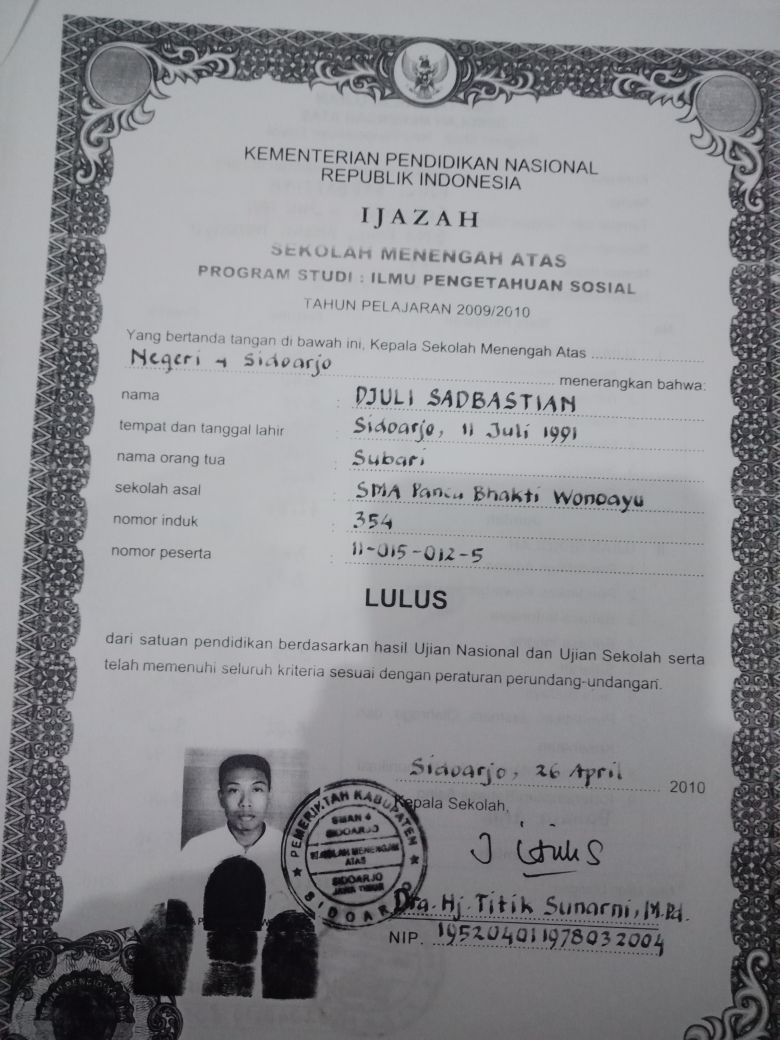 KEMENTERIAN PENDIDIKAN NASIONAL
REPUBLIK INDONESIA
IJAZAH
SEKOLAH MENENGAH ATAS
PROGRAM STUDI : ILMU PENGETAHUAN SOSIAL
TAHUN PELAJARAN 2009/2010
Yang bertanda tangan di bawah ini, Kepala Sekolah Menengah Atas
Negeri 4 Sidoarjo menerangkan bahwa:
nama : DJULI SADBASTIAN
tempat dan tanggal lahir : Sidoarjo, 11 Juli 1991
nama orang tua : Subari
sekolah asal : SMA Panca Bhakti Wonoayu
nomor induk : 354
nomor peserta : 11-015-012-5
LULUS
dari satuan pendidikan berdasarkan hasil Ujian Nasional dan Ujian Sekolah serta
telah memenuhi seluruh kriteria sesuai dengan peraturan perundang-undangan.
Sidoarjo, 26 April 2010
Kepala Sekolah,
PEMERINTAH KABUPATEN
SMAN 4
SIDOARJO
SEKOLAH MENENGAH
ATAS
SIDOARJO
JAWA TIMUR
SIDOARJO
Dra. Hj. Titik Sunarni, M.Pd.
NIP. 195204011978032004